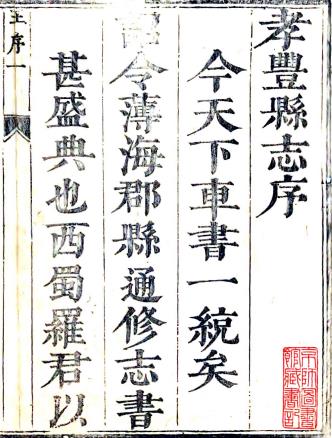 孝豐縣志序
今天下車書一統矣
詔令薄海郡縣通修志書
甚盛典也西蜀羅君以
王序一